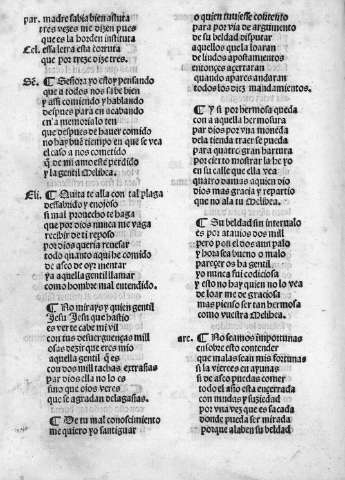 par. madre sabia bien astuta
tres vezes me dizen pues
que es la bordon instituta
Cel. essa letra esta corruta
que por treze dize tres.
Sẽ. ¶ Señora yo estoy pensando
que a todos nos sabe bien
y assi comiendo y hablando
despues para en acabando
en a memoria lo ten
que despues de hauer comido
no hay buẽ tiempo en que se vea
el caso a nos cometido
q̃ de mi amo este perdido
y la gentil Melibea.
Eli. ¶ Quita te alla con tal plaga
dessabrido y enojoso
si mal prouecho te haga
que por dios nunca me vaga
recebir de ti reposo
por dios queria renesar
todo quanto aqui he comido
de asco de oyr mentar
ya aquella gentil llamar
como hombre mal entendido.
¶ No miray o y quien gentil
Jesu Jesu que hastio
es ver te cabe mi vil
con tus desuerguenças mill
osas dezir que eres mio
aquella gentil q̃ es
con dos mill tachas estrañas
par dios ella no lo es
sino que ojos veres
que se agradan de lagañas.
¶ De tu mal conoscimiento
me quiero yo santiguar
o quien tuuiesse contento
para por via de argumento
de su beldad disputar
aquellos que la loaran
de lindos apostamientos
entonçes açertaran
quando apares andaran
todos los diez mandamientos.
¶ Y si por hermosa queda
con a aquella hermosura
par dios por vna moneda
dela tienda traer se pueda
para quatro gran hartura
por cierto mostrar la he yo
en su calle que ella vea
quatro damas a quien dio
dios mas gracia y repartio
que no ala tu Melibea.
¶ Su beldad sin interualo
es por atauios dos mill
pero pon el dos aun palo
y hora sea bueno o malo
pareçer os ha gentil
yo nunca fui codiciosa
y esto no hay quien no lo vea
de loar me de graciosa
mas pienso ser tan hermosa
como vuestra Melibea.
arc. ¶ No seamos importunas
en sobre esto contender
que mal as sean mis fortunas
si la vierees en ayunas
si de asco puedas comer
todo el año esta encerrada
con mudas y suziedad
por vna vez que es sacada
donde pueda ser mirada
porque alaben su beldad